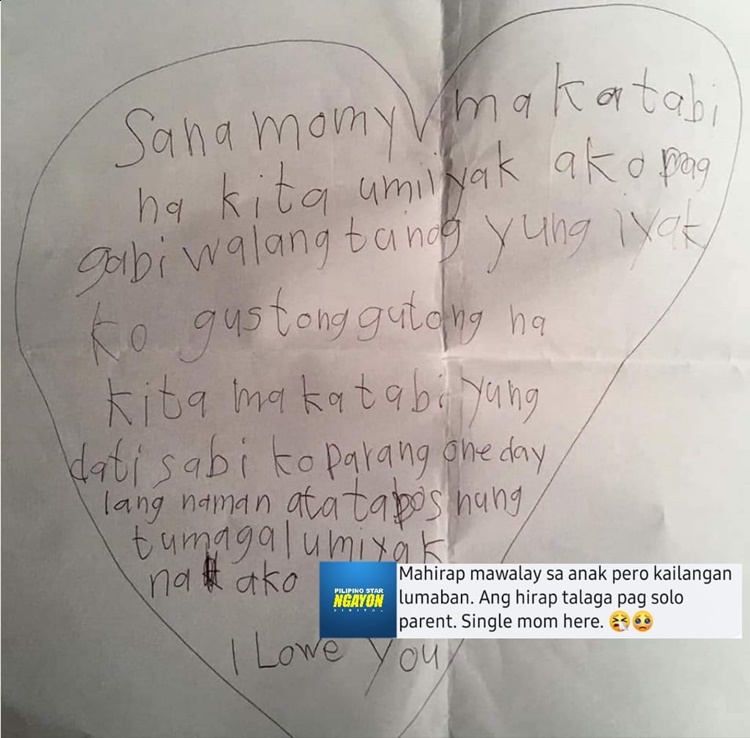 Sana momy makatabi
na kita umiiyak ako pag
gabi walang tunog yung iyak
ko gustong gutong na
kita makatabi yung
dati sabi ko parang one day
lang naman ata tapos nung
tumagal umiyak
na ako
I Lowe You
PILIPINO STAR
NGAYON
DIGITAL
Mahirap mawalay sa anak pero kailangan
lumaban. Ang hirap talaga pag solo
parent. Single mom here. 🤧🥺